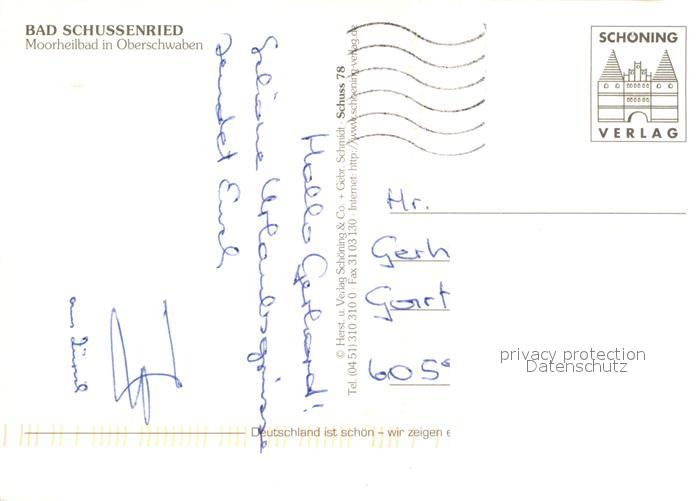 BAD SCHUSSENRIED
Moorheilbad in Oberschwaben
Hallo Gerhard!
Schöne Urlaubsgrüsse
sendet Euch
© Herst. u. Verlag Schöning & Co. + Gebr. Schmidt · Schuss 78
Tel. (04 51) 310 310 0 · Fax 31 03 130 · Internet: http://www.schoening-verlag.de
SCHÖNING
VERLAG
Hr.
Gerh
Gart
605
privacy protection
Datenschutz
Deutschland ist schön – wir zeigen e